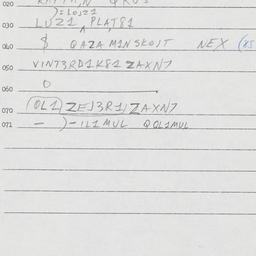 020
)=LOJZ1
030 LUZ1, PLATS1
040 $ QAZA M1NSKOJT NEX
050 V1NT3RD1K81 ZAXN7
060 O
070 (OL1) ZEJ3R1/ZAXN7
071 — )-1L1MUL QOL1MUL